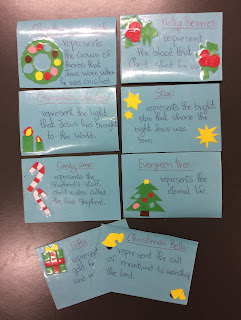 represents
the Crown of
thorns that
Jesus wore when
he was crucified.
Holly berries
represent
the blood that
Christ shed for us
represents the light
that Jesus has brought
to the world.
Star
represents the bright
star that shone the
night Jesus was
born.
Candy cane
represents the
shepherd's staff,
Christ is also called
the Good Shepherd.
Evergreen Tree
represents the
eternal life.
Gifts
represent
gold, fr
and m
Christmas Bells
represent the call
of mankind to worship
the Lord.